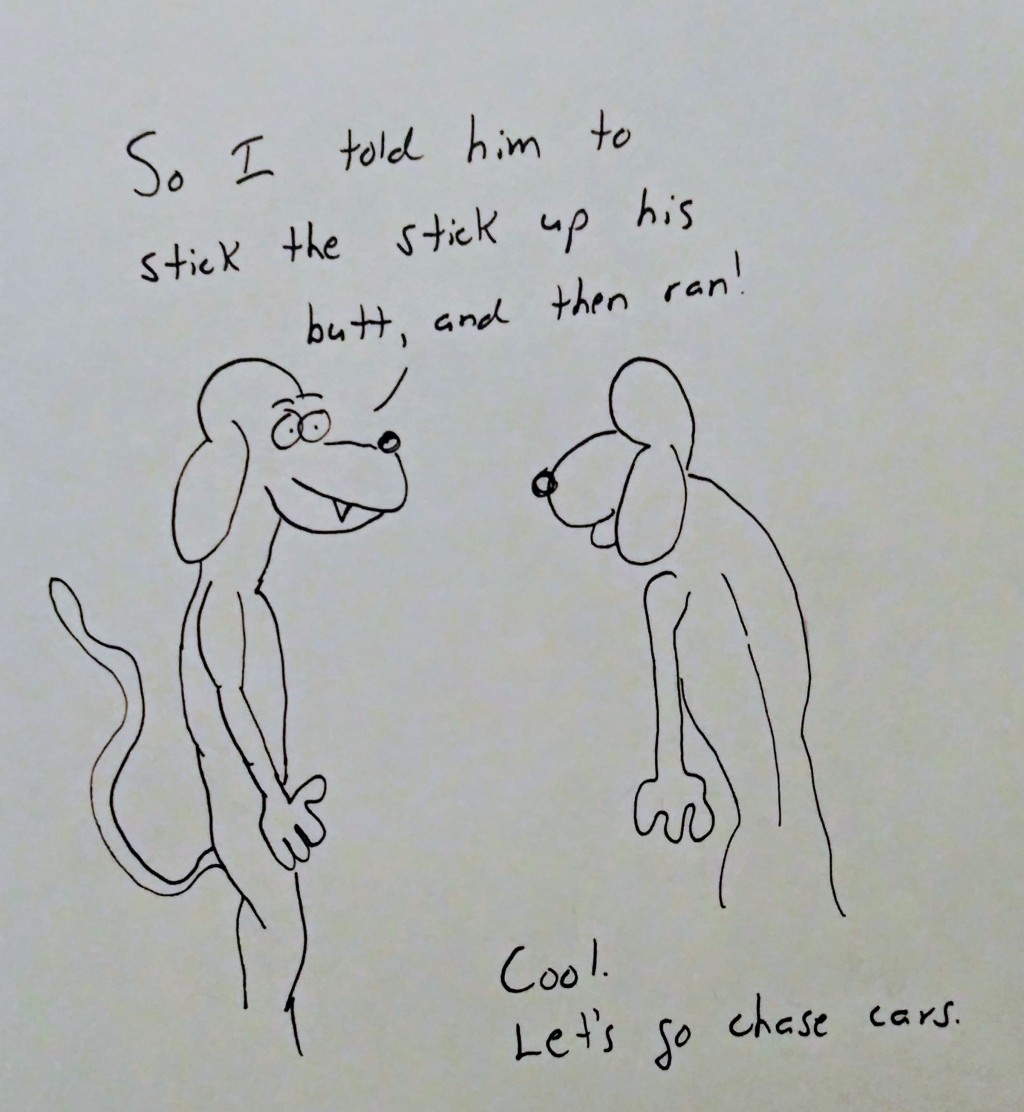 So I told him to
stick the stick up his
butt, and then ran!
Cool.
Let's go chase cars.